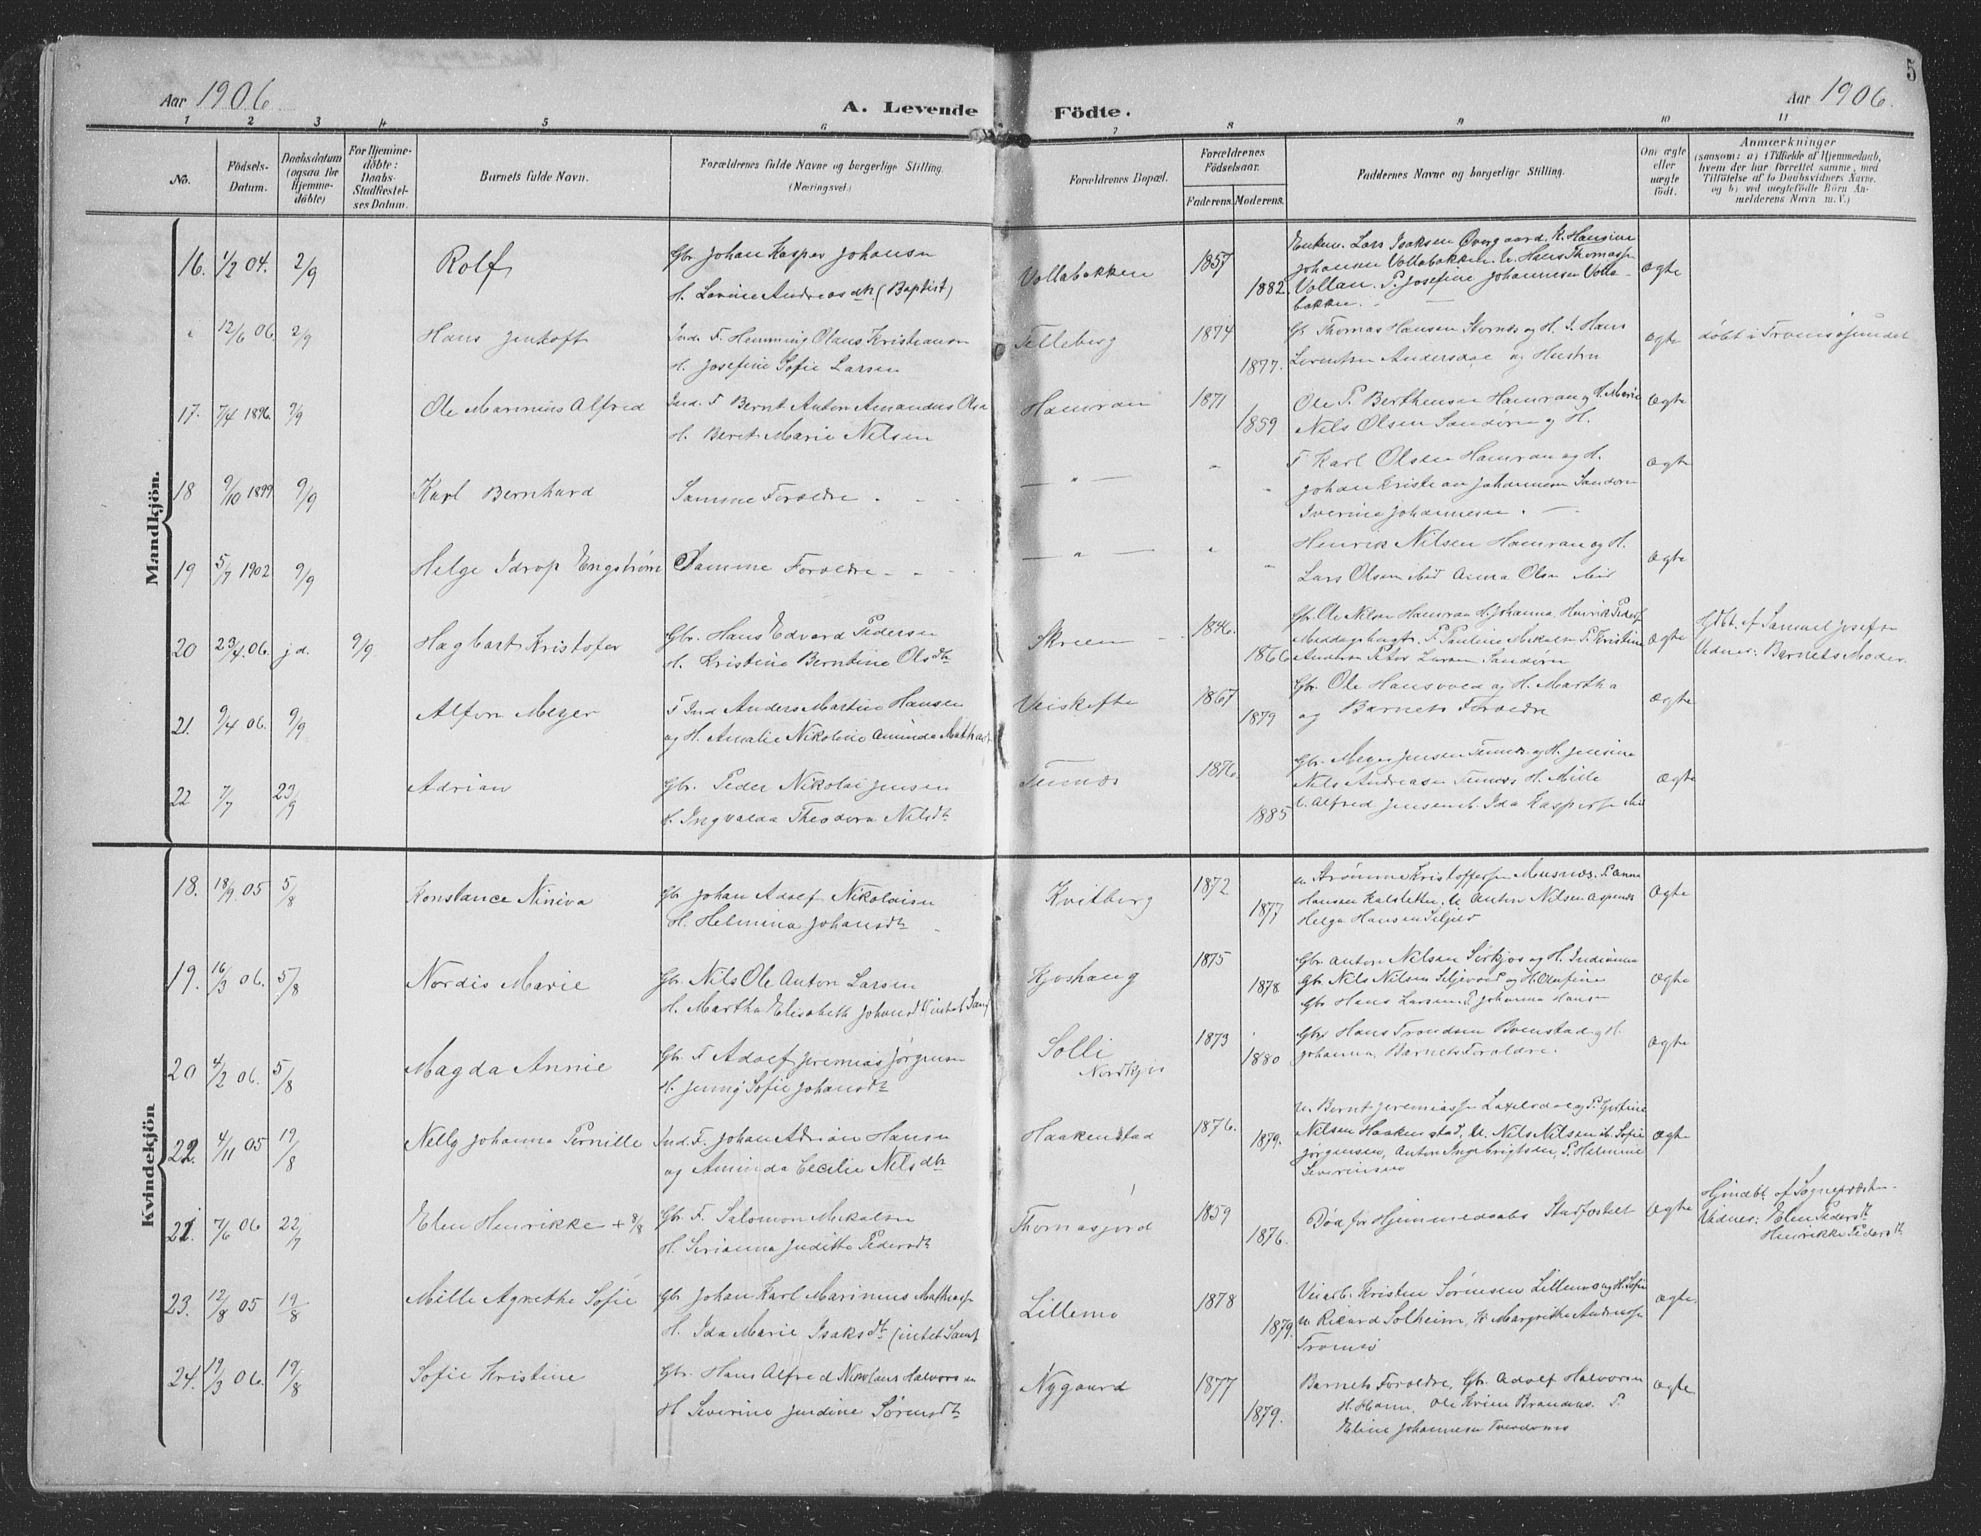 5
Aar 1906
A. Levende Födte.
Aar 1906.
1 2 3 4 5 6 7 8 9 10 11
No.
Födsels-Datum.
Daabsdatum (ogsaa for Hjemme-döbte)
For Hjemme-döbte: Daabs-Stadfæstel-ses Datum.
Barnets fulde Navn.
Forældrenes fulde Navne og borgerlige Stilling. (Næringsvei.)
Forældrenes Bopæl.
Forældrenes Födselsaar.
Faderens. Moderens.
Faddernes Navne og borgerlige Stilling.
Om ægte eller uægte födt.
Anmærkninger
(saasom: a) i Tilfælde af Hjemmedaab, hvem der har forrettet samme, med Tilföielse af to Daabsvidners Navne, og b) ved uægtefödte Börn An-melderens Navn m. V.)
Mandkjön.
16. 1/2 04. 2/9 Rolf
Gbr Johan Kasper Johansen
H. Lovine Andreasdtr (Baptist)
Vollabakken 1857 1882
Enkem. Lars Isaksen Övergaard. K. Hansine
Johansen Vollabakken. U. Hans Thomass
Vollan. P. Josefine Johannesen Volla-
bakken.
ægte
" 12/6 06 2/9 Hans Jentoft
Ind. F. Hemming Olaus Kristiansen
H. Josefine Sofie Larsen
Telleberg 1874 1877.
Gb Thomas Hansen Stornes og H. F. Hans
Lorentsen Andersdal og Hustru
ægte døbt i Tromsøsundet
17. 7/4 1896. 9/9 Ole Marinius Alfred
Ind. F. Bernt Anton Amandus Olsen
H. Beret Marie Nilsen
Hamran 1871 1859
Ole P. Berthensen Hamran og H. Marie
Nils Olsen Sandøren og H.
ægte
18 9/10 1899 9/9 Karl Bernhard
Samme Forældre
— " — " "
F. Karl Olsen Hamran og H.
Johan Kristian Johannesen Sandøren
Iverine Johannesen
ægte
19 5/7 1902 9/9 Helge Idrop Engstrøm
Samme Forældre
— " — " "
Henrik Nilsen Hamran og H.
Lars Olsen ibid Anna Olsen ibid
ægte
20 23/4 06. jd. 9/9 Hagbart Kristofer
Gbr. Hans Edvard Pedersen
H. Kristine Berntine Olsdtr
Skreen 1846. 1866
Gbr. Ole Nilsen Hamran H. Johanna, Henrik Peders
Meddagsbugt. P. Pauline Mikalsen P. Kristine
Andersen Peter Larsen Sandøren
ægte
Hdbt. af Samuel Josefsen
Vidnes: Barnets Moder.
21. 9/4 06. 9/9 Alfon Meyer
F Ind Anders Martin Hansen
og H. Amalie Nikoline Aminda Mathisd
Veiskifte 1867 1879
Gbr. Ole Hansvold og H. Martha
og Barnets Forældre
ægte
22 7/7 23/9 Adrian
Gbr. Peder Nikolai Jensen
H. Ingvalda Theodora Nilsdtr
Tennes 1876. 1885
Gbr. Meyer Jensen Tennes og H. Jensine
Nils Andreasen Tennes H. Mille
U. Alfred Jensen ib. Ida Kaspersen ibid
ægte
Kvindekjön
18. 18/9 05 5/8 Konstance Niniva
Gbr Johan Adolf Nikolaisen
H. Helmina Johansdtr
Kvitberg 1872 1877
U. Strømme Kristoffersen Mesnes. P. Anne
Hansen Kalsletten, U. Anton Nilsen Aspenes
Helga Hansen
ægte
19. 16/3 06. 5/8 Nordis Marie
Gbr. Nils Ole Anton Larsen
H. Martha Elisabeth Johansd (intet Samf)
Kjoshaug 1875 1878
Gbr. Anton Nilsen Sørkjos og H. Indianna
Gbr Nils Nilsen Seljevold og H. Olufine
Gbr Hans Larsen. P. Johanna Hansen
ægte
20 4/2 06. 5/8 Magda Annie
Gbr F. Adolf Jeremias Jørgensen
H. Jenny Sofie Johansdtr
Solli
Nordkjos
1873 1880
Gbr Hans Trondsen Bomstad og H.
Johanna, Barnets Forældre.
ægte
22. 4/11 05 19/8 Nelly Johanna Pernille
Ind. F. Johan Adrian Hansen
og Aminda Cecilie Nilsdtr
Haakenstad 1876. 1879.
U. Bernt Jeremiass Laxelvdal og P. Gustine
Nilsen Haakenstad, U. Nils Nilsen ib. Sofie
Jørgensen, Anton Ingebrigtsen, P. Helmine
Severinsen
ægte
21. 7/6 06 22/7 Elen Henrikke + 8/8
Gbr. F. Salomon Mikalsen
H. Serianna Juditte Pedersdtr
Thomasjord 1859 1876.
Død før Hjemmedaabs Stadfæstelse
ægte
Hjmdbt. af Sognepræsten.
Vidnes: Elen Pedersdtr
Henrikke Pedersdtr
23. 12/8 05 19/8 Mille Agnethe Sofie
Gbr Johan Karl Marinus Mathiass
H. Ida Marie Isaksdtr (intet Samf
Lillemo 1878 1879.
Veiarb. Kristen Sørensen Lillemo og H. Sofie
U. Rikard Solheim, P. Margrethe Andreass
Tromsø
ægte
24. 12/3 06. 19/8 Sofie Kristine
Gbr. Hans Alfred Nikolaus Halvorsen
H. Severine Jerdine Sørensdtr
Nygaard 1877 1879.
Barnets Forældre, Gbr. Adolf Halvorsen
H. Hanna, Ole Brandnes. P.
Eline Johannesen
ægte